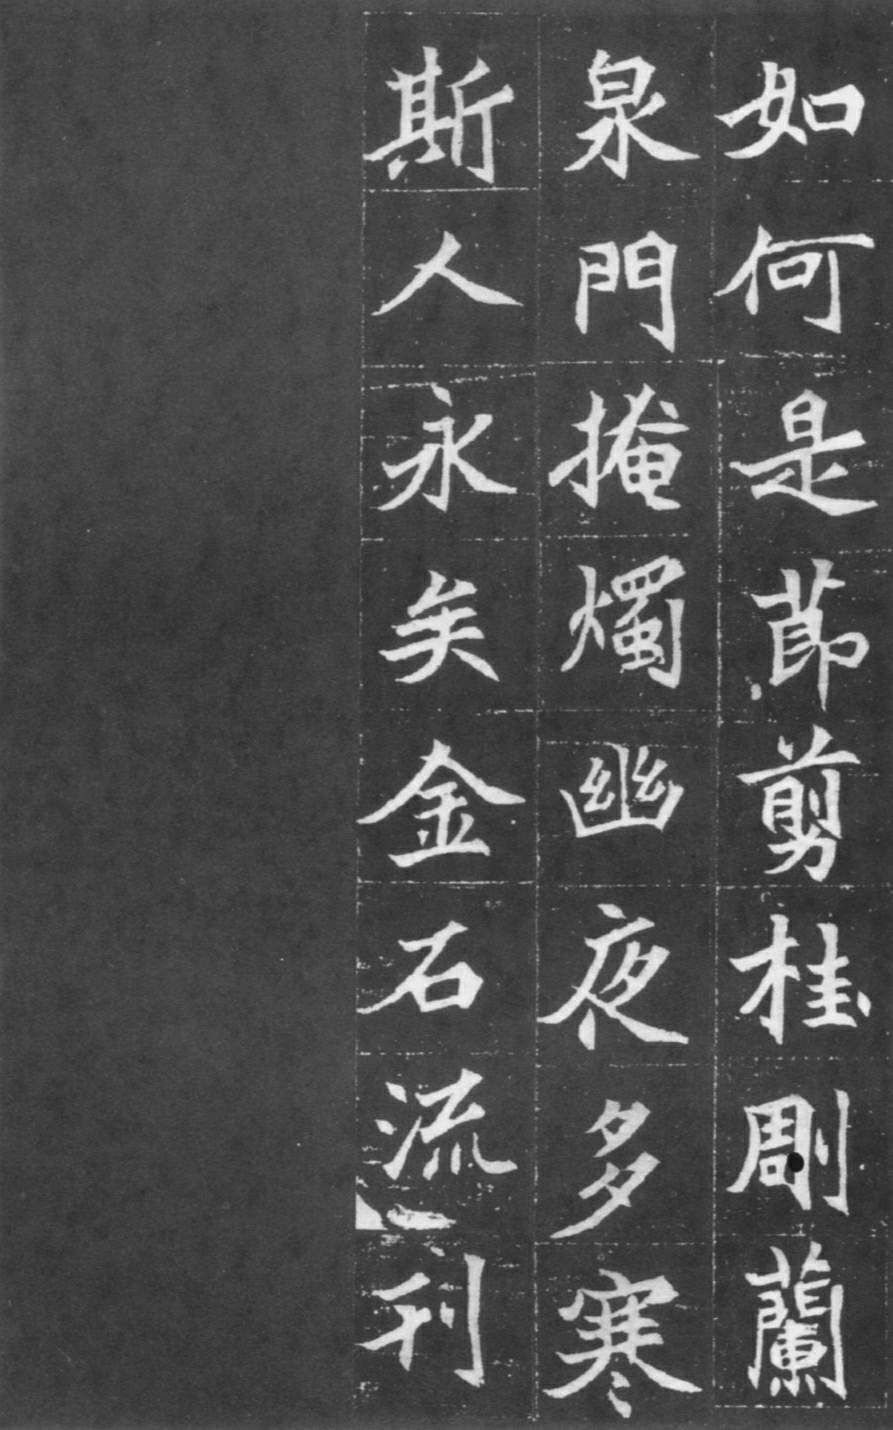 如何是莭剪桂㓮蘭
泉門掩燭幽夜多寒
斯人永矣金石流刊